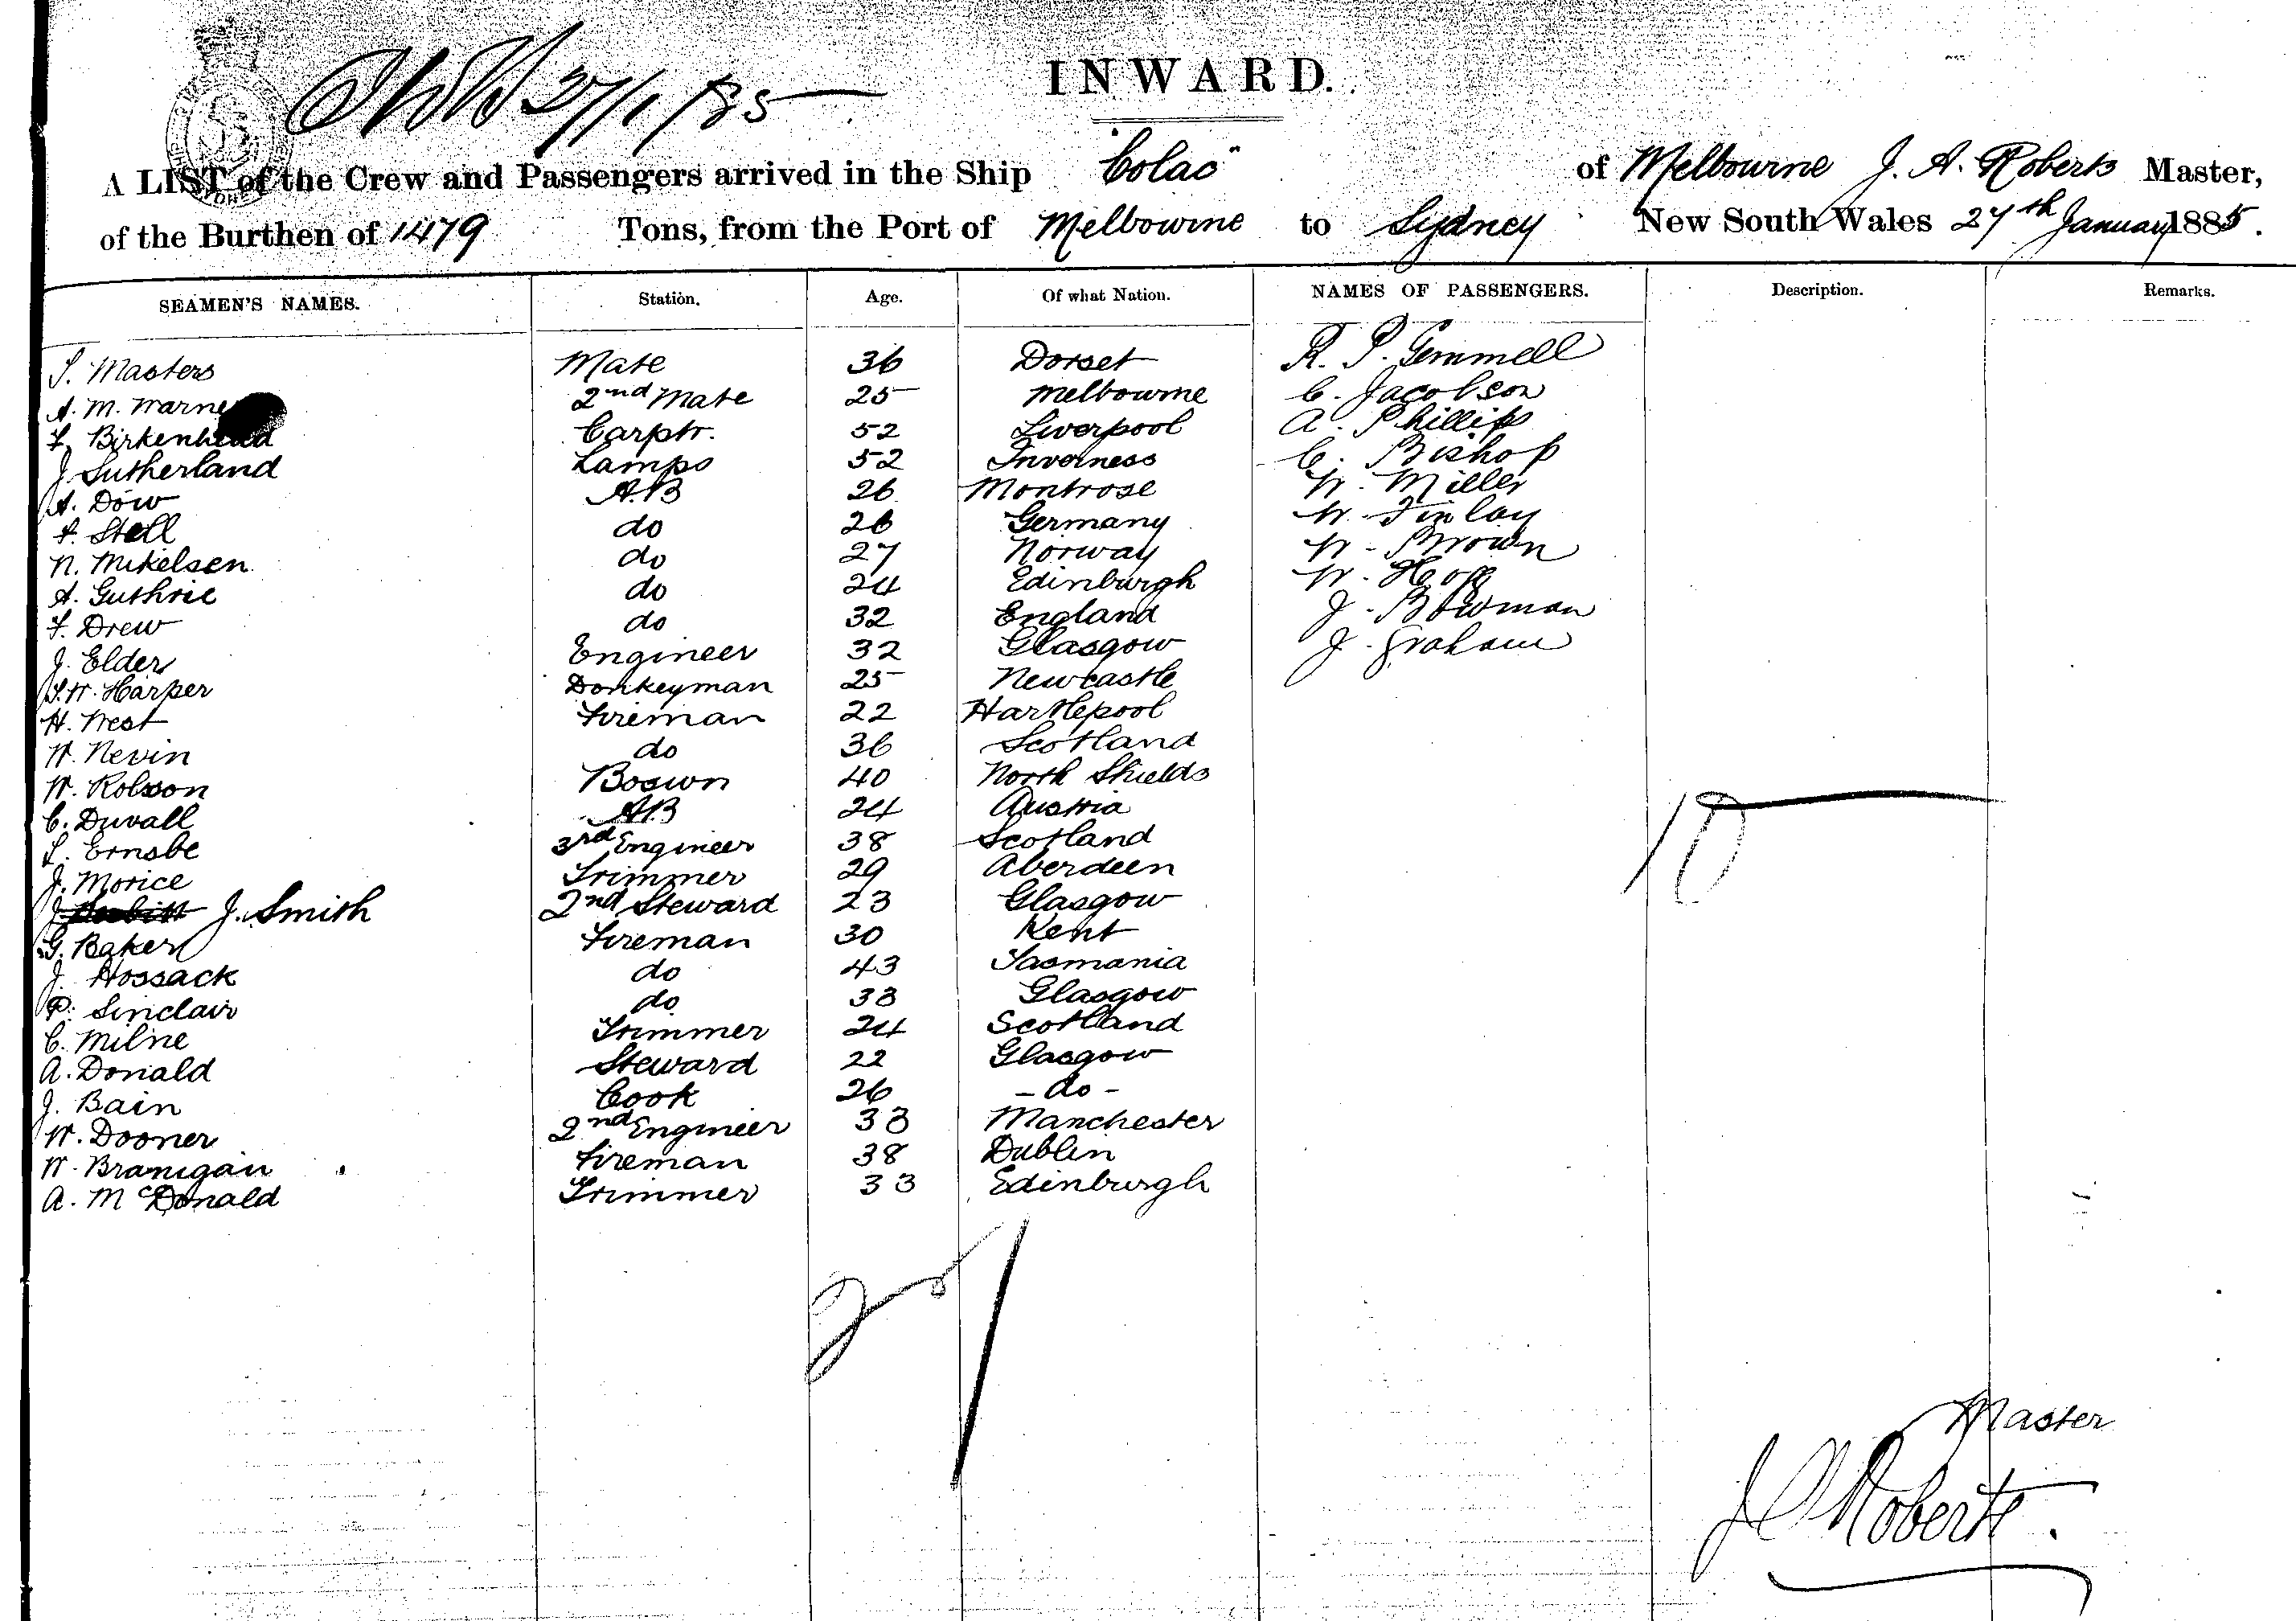 27/1/85
INWARD.
A LIST of the Crew and Passengers arrived in the Ship "Colac" of Melbourne J. A. Roberts Master,
of the Burthen of 1479 Tons, from the Port of Melbourne to Sydney New South Wales 27th January 1885.
SEAMEN'S NAMES. Station. Age. Of what Nation. NAMES OF PASSENGERS. Description. Remarks.
S. Masters Mate 36 Dorset R. P. Gemmell
A. M. Warne 2nd Mate 25 Melbourne C. Jacobson
F. Birkenhead Carptr. 52 Liverpool A. Phillips
J. Sutherland Lamps 52 Inverness C. Bishop
A. Dow A.B 26 Montrose W. Miller
F. Stell do 26 Germany W. Finlay
N. Mikelsen do 27 Norway W. Brown
A. Guthrie do 24 Edinburgh W. Hogg
F. Drew do 32 England J. Bowman
J. Elder Engineer 32 Glasgow J. Graham
S. W. Harper Donkeyman 25 Newcastle
H. West Fireman 22 Hartlepool
W. Nevin do 36 Scotland
W. Robson Boswn 40 North Shields
C. Duvall AB 24 Austria
L. Ernsbe 3rd Engineer 38 Scotland
J. Morice Trimmer 29 Aberdeen
J. Smith 2nd Steward 23 Glasgow
G. Baker Fireman 30 Kent
J. Hossack do 43 Tasmania
P. Sinclair do 33 Glasgow
C. Milne Trimmer 24 Scotland
A. Donald Steward 22 Glasgow
J. Bain Cook 26 - do -
W. Dooner 2nd Engineer 33 Manchester
W. Branigan Fireman 38 Dublin
A. McDonald Trimmer 33 Edinburgh
10
Master
J A Roberts.